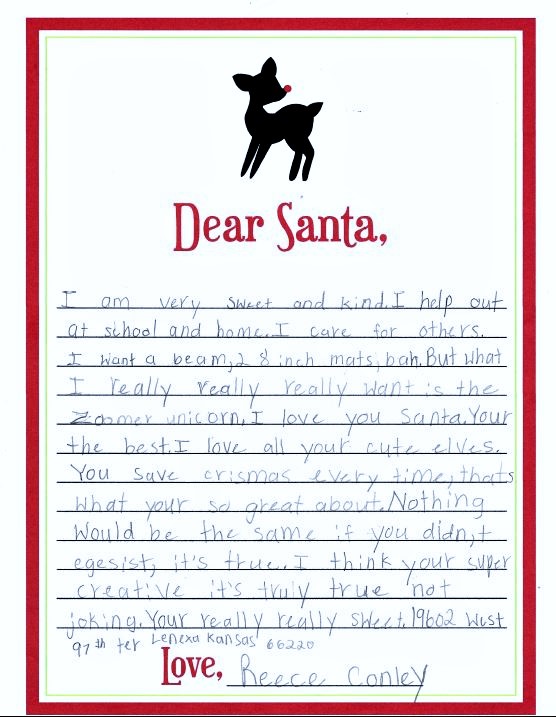 Dear Santa,
I am very sweet and kind. I help out
at school and home. I care for others.
I want a beam, 2 8 inch mats, bah. But what
I really really really want is the
Zoomer unicorn, I love you Santa. Your
the best. I love all your cute elves.
You save crismas every time, thats
what your so great about. Nothing
Would be the same if you didn,t
egesist, it's true. I think your super
creative it's truly true not
joking. Your really really sweet. 19602 West
97th ter Lenexa Kansas 66220
Love, Reece Conley